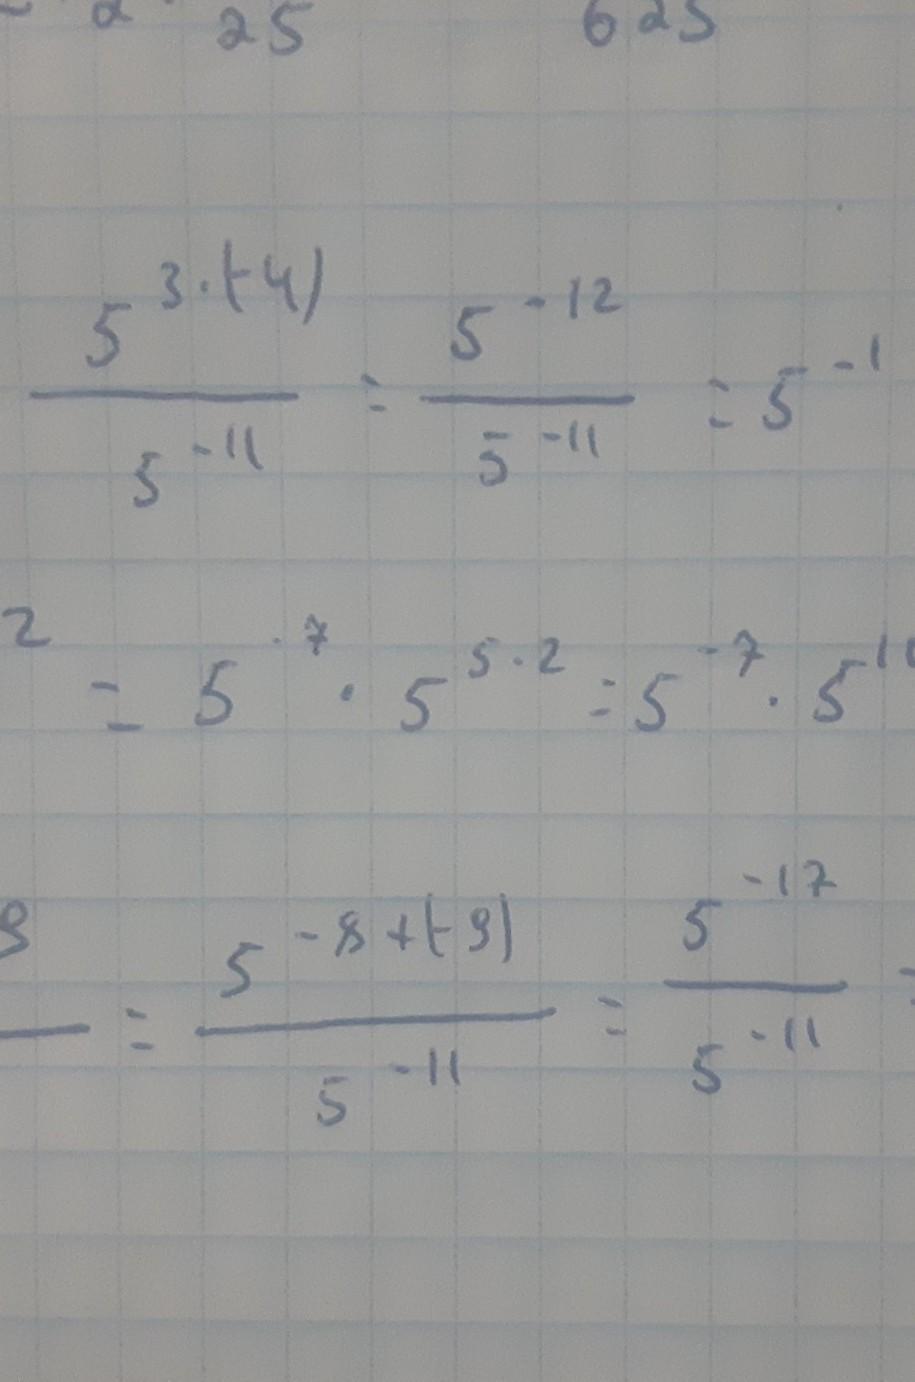 25 625
5^{3·(-4)} / 5^{-11} = 5^{-12} / 5^{-11} = 5^{-1}
2 = 5^{-7} · 5^{5·2} = 5^{-7} · 5^{1
9 = 5^{-8+(-9)} / 5^{-11} = 5^{-17} / 5^{-11} =